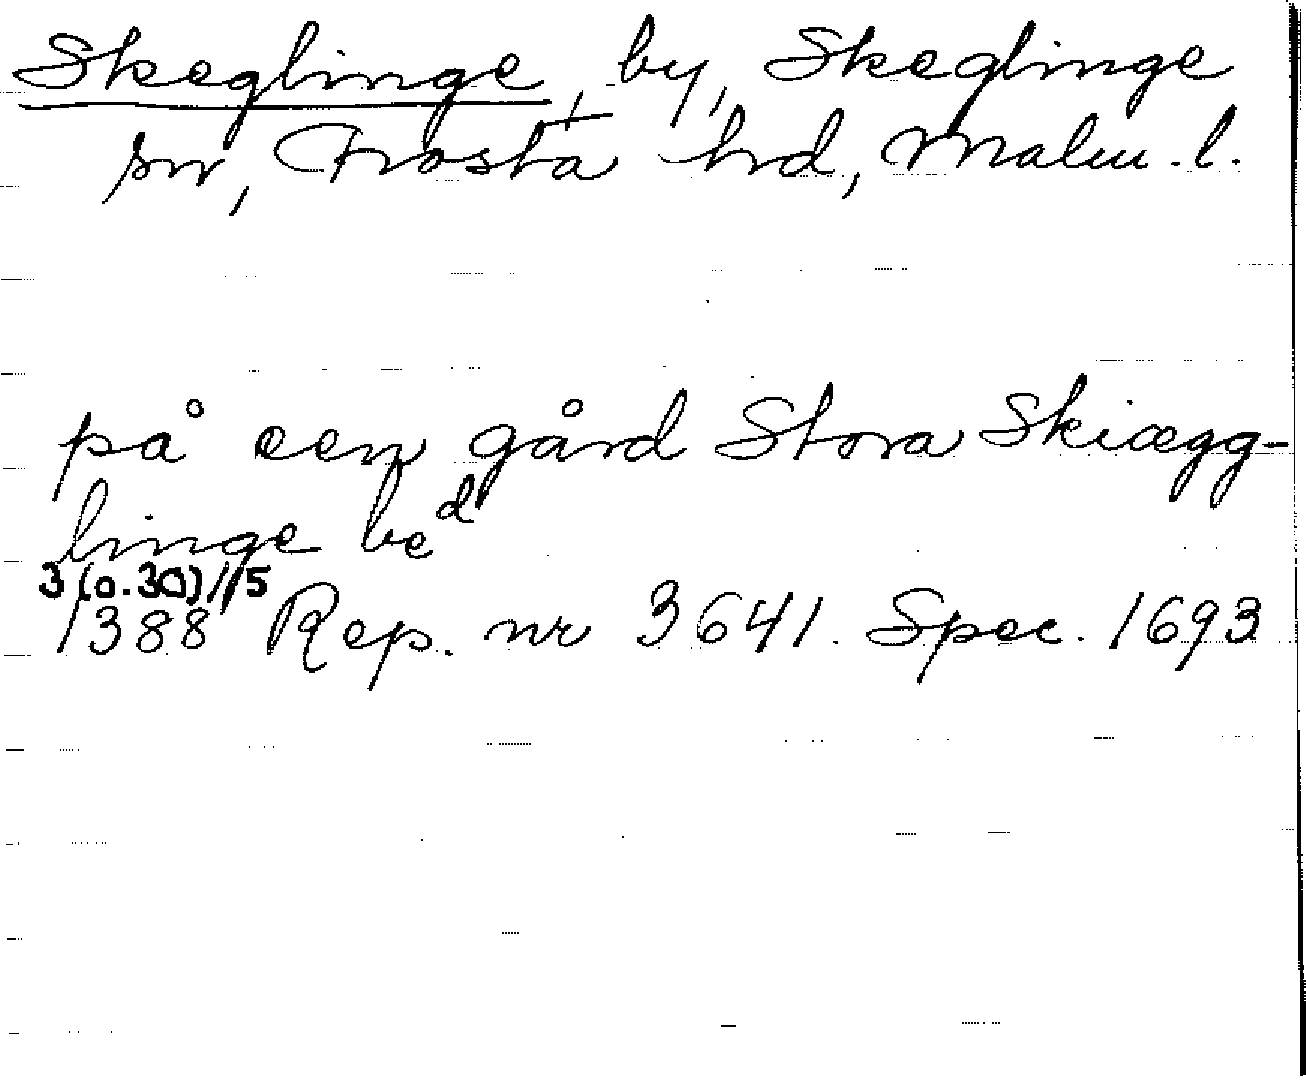 Skeglinge, by, Skeglinge
sn, Frosta hd, Malm. l.
på een gård Stora Skiægg-
linge beᵈ
3 (o. 30)/5
1388 Rep. nr 3641. Spec. 1693